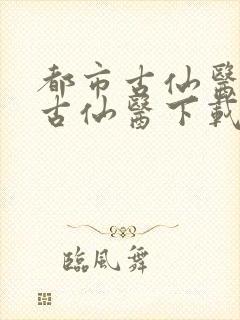 都市古仙醫
古仙醫下載
臨風舞